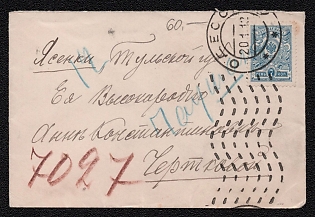 60.-
ОДЕССА
20 1 12
Ясенки Тульской г
Ея Высокародію
Аннѣ Константиновнѣ
Чертковой
7027